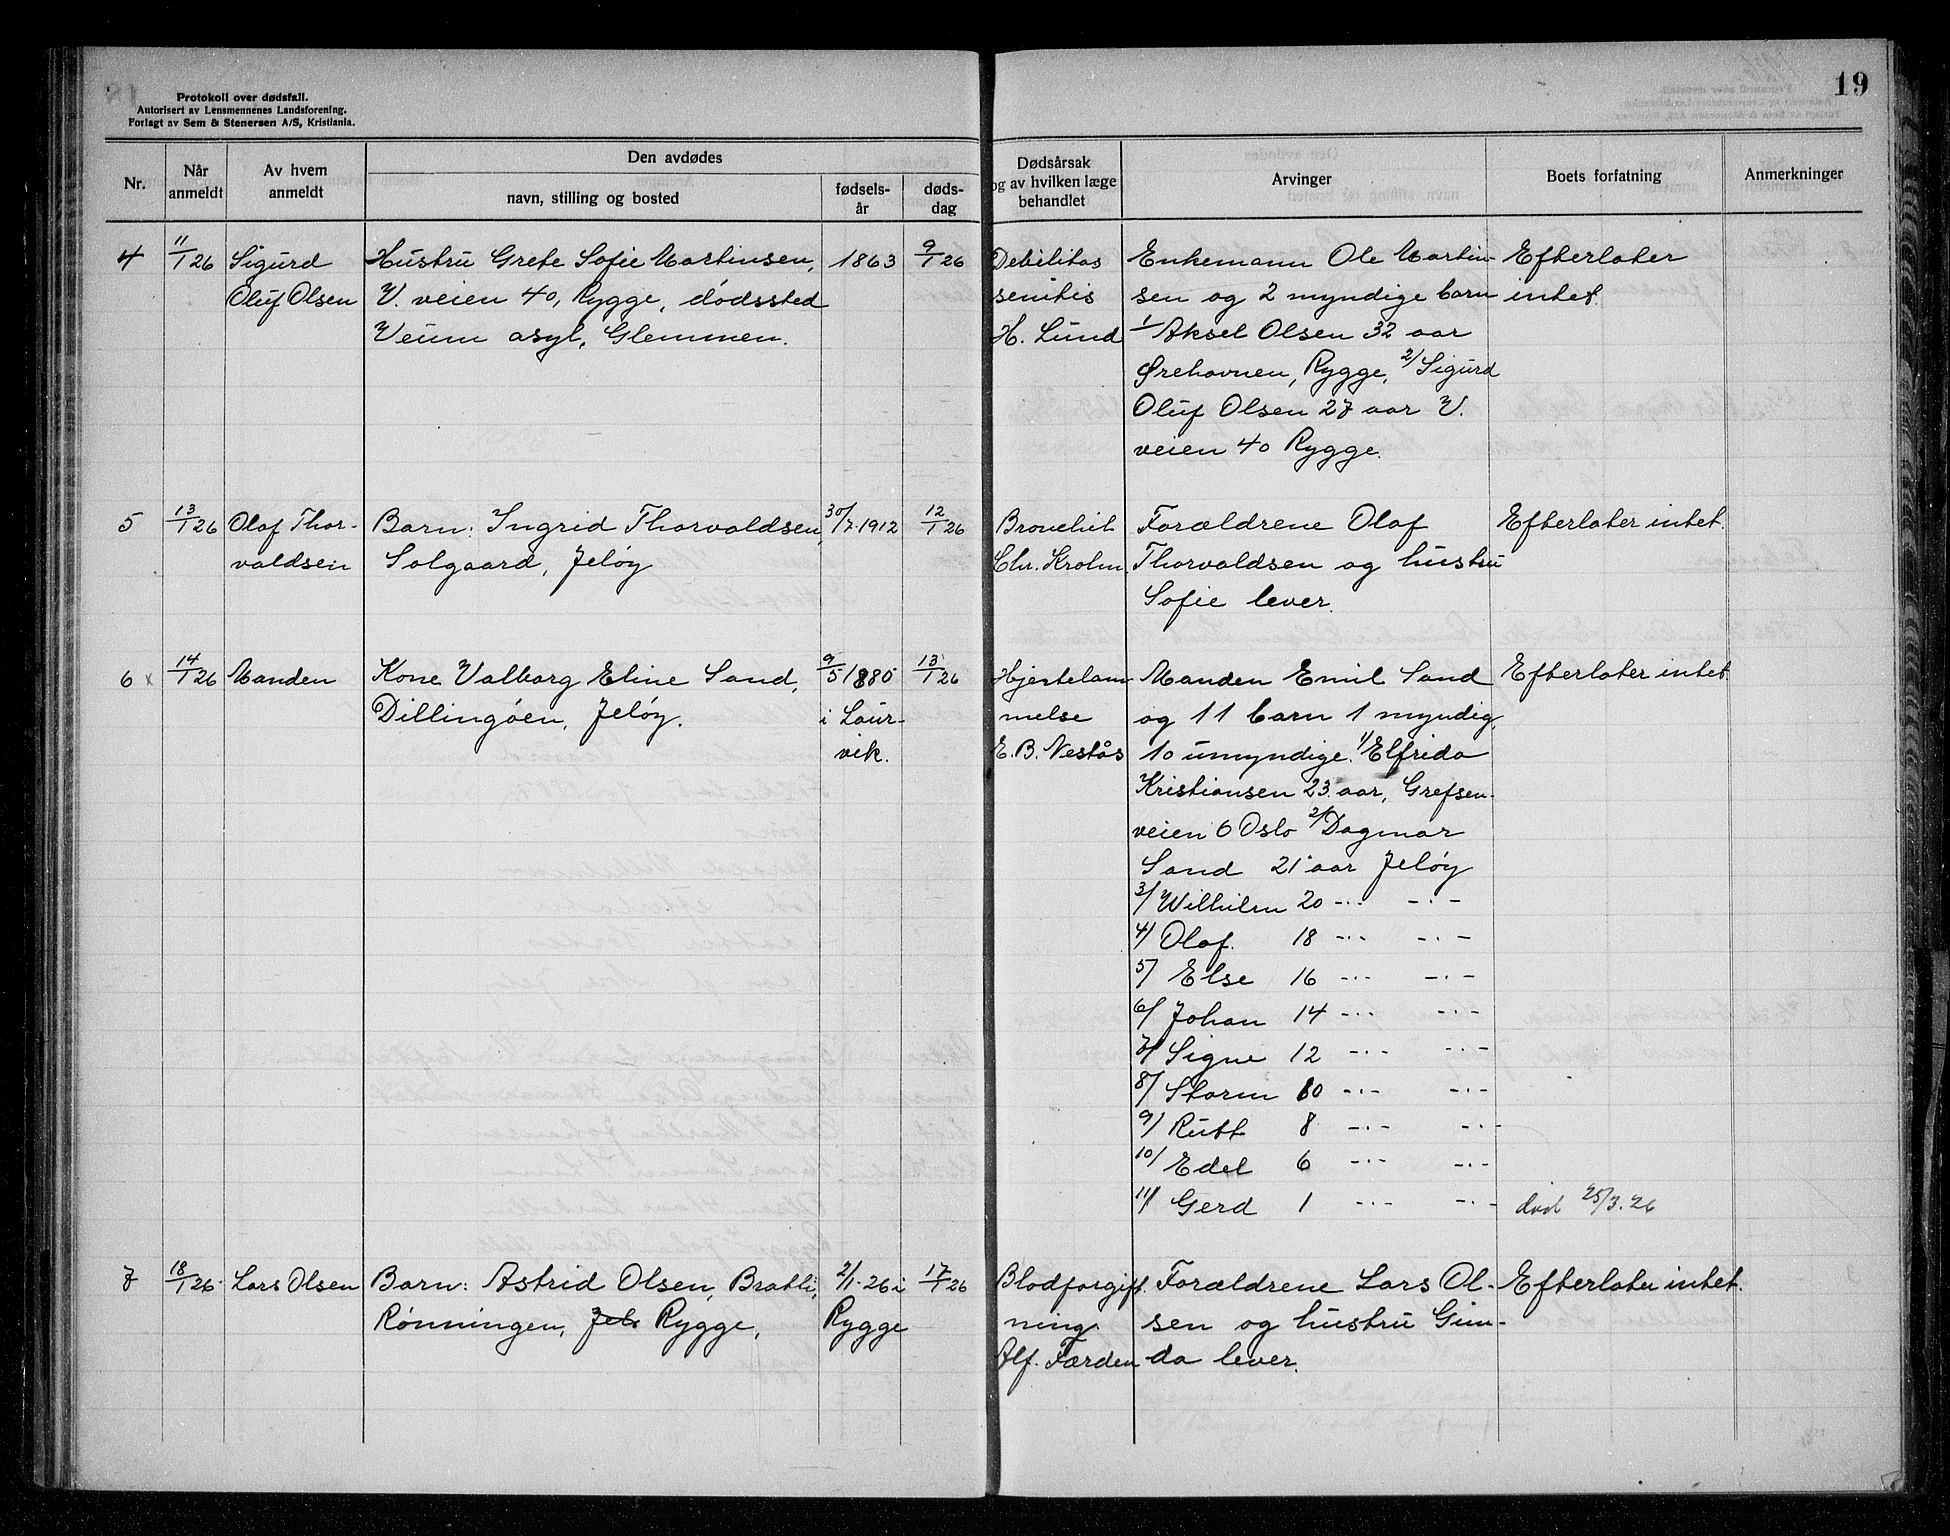 Protokoll over dødsfall.
Autorisert av Lensmennenes Landsforening.
Forlagt av Sem & Stenersen A/S, Kristiania.
19
Nr.
Når anmeldt
Av hvem anmeldt
Den avdødes
navn, stilling og bosted
fødsels-år
døds-dag
Dødsårsak og av hvilken læge behandlet
Arvinger
Boets forfatning
Anmerkninger
4
11/1 26
Sigurd
Oluf Olsen
Hustru Grete Sofie Martinsen,
V. veien 40, Rygge, dödssted
Veum asyl, Glemmen.
1863
9/1 26
Debilitas
senitis
H. Lund
Enkemann Ole Martin-
sen og 2 myndige barn
1/ Aksel Olsen 32 aar
Ørehavnen, Rygge, 2/ Sigurd
Oluf Olsen 27 aar V.
veien 40 Rygge.
Efterlater
intet.
5
13/1 26
Olaf Thor-
valdsen
Barn: Ingrid Thorvaldsen,
Solgaard, Jeløy
30/7-1912
12/1 26
Bronchit
Chr. Krohn.
Forældrene Olaf
Thorvaldsen og hustru
Sofie lever.
Efterlater intet.
6 x
14/1 26
Manden
Kone Valborg Eline Sand,
Dillingöen, Jeløy.
9/5 1880
i Laur-
vik.
13/1 26
Hjertelam-
melse
E. B. Nestås
Manden Emil Sand
og 11 barn 1 myndig,
10 umyndige. 1/ Elfrida
Kristiansen 23 aar, Grefsen-
veien 6 Oslo 2/ Dagmar
Sand 21 aar Jeløy
3/ Wilhelm 20 -·- -·-
4/ Olaf. 18 -·- -·-
5/ Else 16 -·- -·-
6/ Johan 14 -·- -·-
7/ Signe 12 -·- -·-
8/ Storm 10 -·- -·-
9/ Rutt 8 -·- -·-
10/ Edel 6 -·- -·-
11/ Gerd 1 -·- -·-
Efterlater intet
död 25/3.26
7
18/1 26
Lars Olsen
Barn: Astrid Olsen, Bratli,
Rønningen, Jel. Rygge,
2/1-26 i
Rygge
17/1 26
Blodforgift.
ning
Alf. Færden
Forældrene Lars Ol-
sen og hustru Gun-
da lever.
Efterlater intet.